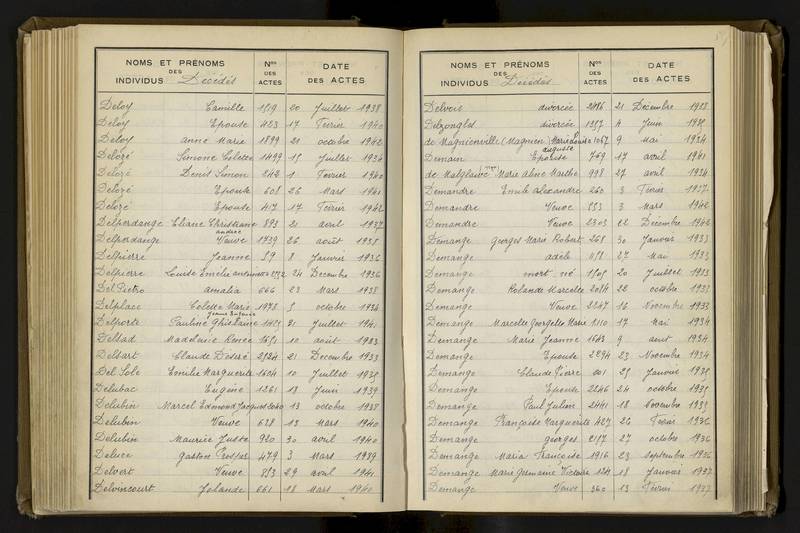 NOMS ET PRÉNOMS
DES
INDIVIDUS Décédés
Nos
DES
ACTES
DATE
DES ACTES
Deloy Camille 1819 20 Juillet 1938
Deloy Epouse 423 17 Février 1940
Deloy Anne Marie 1899 21 octobre 1942
Delozé Simone Colette 1499 15 Juillet 1936
Delozé Denis Simon 242 1 Février 1940
Delozé Epouse 601 26 Mars 1941
Delozé Epouse 417 17 Février 1942
Delperdange Eliane Christiane 893 21 avril 1937
Andrée
Delperdange Veuve 1739 26 août 1935
Delpierre Jeanne 59 8 Janvier 1936
Delpierre Louise Emélie 24 Décembre 1936
Del Pietro Amalia 666 23 Mars 1938
Delplace Colette Marie 1978 5 octobre 1934
Delporte Pauline Ghislaine 21 Juillet 1941
Delsad Madeleine Renée 1651 10 août 1933
Delsart Claude Désiré 2524 21 Décembre 1933
Del Sole Emilie Marguerite 1604 10 Juillet 1935
Delubac Eugène 1261 13 Juin 1939
Delubin Marcel Edmond Jacques 13 octobre 1938
Delubin Veuve 628 13 Mars 1940
Delubin Maurice Juste 920 30 avril 1940
Deluce Gaston Prosper 479 3 Mars 1939
Delvert Veuve 853 29 avril 1941
Delvincourt Yolande 661 18 Mars 1940
NOMS ET PRÉNOMS
DES
INDIVIDUS Décédés
Nos
DES
ACTES
DATE
DES ACTES
divorcée 2486 21 Décembre 1938
divorcée 1357 4 Juin 1935
de Magnienville (Magnien) Marie Louise 1067 9 Mai 1934
Auguste
Demain Epouse 769 17 avril 1941
de Malglaive Marie Aline Marthe 998 27 avril 1934
Demandre Emile Alexandre 260 3 Février 1937
Demandre Veuve 553 3 Mars 1942
Demandre Veuve 2303 22 Décembre 1942
Demange Georges Marie Robert 268 30 Janvier 1933
Demange Adèle 27 Mai 1933
Demange mort né 1505 20 Juillet 1933
Demange Rolande Marcelle 2084 22 octobre 1933
Demange Veuve 2247 16 Novembre 1933
Demange Marcelle Georgette Marie 1110 17 Mai 1934
Demange Marie Jeanne 1643 9 août 1934
Demange Epouse 2294 23 Novembre 1934
Demange Claude Pierre 201 25 Janvier 1935
Demange Epouse 2246 24 octobre 1935
Demange Paul Julien 2441 18 Novembre 1935
Demange Françoise Marguerite 427 26 Février 1936
Demange Georges 2157 27 octobre 1936
Demange Maria Françoise 1916 23 septembre 1936
Demange Marie Germaine Victoire 18 Janvier 1937
Demange Veuve 360 13 Février 1937